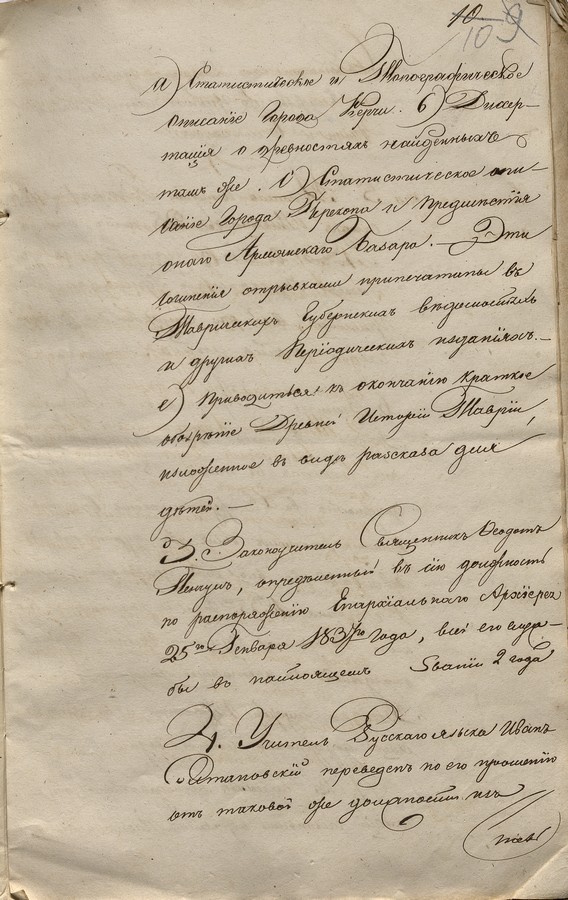 10
10
а) Статистическое и Топографическое
описанiе Города Керчи. б) Диссер-
тацiя о древностяхъ найденныхъ
тамъ же. с) Статистическое опи-
санiе Города Перекопа и Предместiя
онаго Армянскаго Базара. — Эти
сочиненiя отрывками припечатаны въ
Таврическихъ Губернскихъ вѣдомостяхъ
и другихъ Перiодическихъ изданiяхъ. —
е) Приводиться къ окончанiю краткое
обозрѣнiе Древней Исторiи Таврiи,
изложенное въ видѣ разсказа для
дѣтей. —
3. Законоучитель Священникъ Ѳеодотъ
опредѣленный въ сiю должность
по распоряженiю Епархiальнаго Архiерея
25го Генваря года, всей его служ-
бы въ настоящемъ званiи 2 года
4. Учитель Русскаго языка Иванъ
переведенъ по его прошенiю
отъ таковой же должности изъ